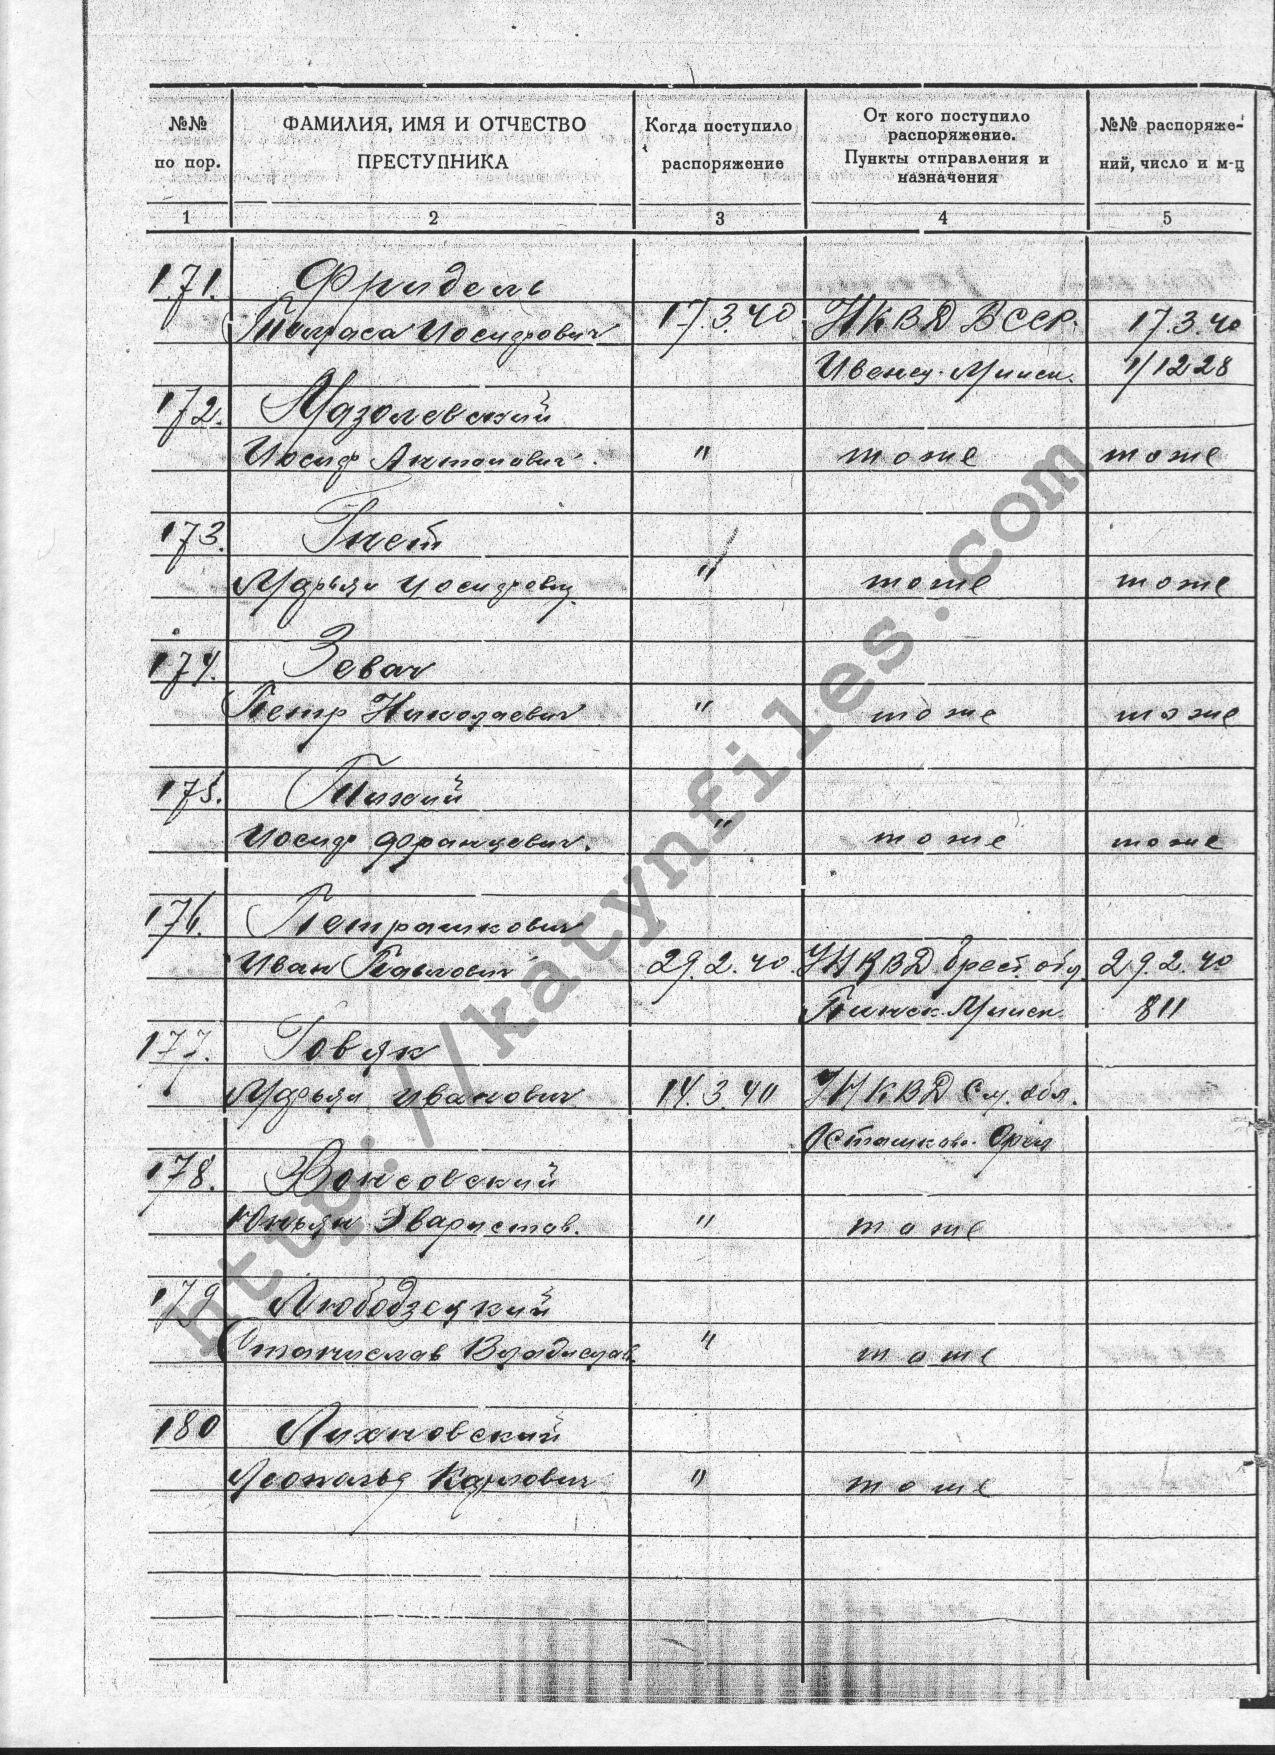 №№ по пор.
ФАМИЛИЯ, ИМЯ И ОТЧЕСТВО ПРЕСТУПНИКА
Когда поступило распоряжение
От кого поступило распоряжение. Пункты отправления и назначения
№№ распоряже-ний, число и м-ц
1 2 3 4 5
171. Фридель
Иосифович 17.3.40 НКВД БССР. 17.3.40
Ивенец. Минск. 1/1228
172. Мазолевский
Иосиф Антонович. " тоже тоже
173. Гнет
Марьян Иосифович. " тоже тоже
174. Зевач
Петр Николаевич " тоже тоже
175. Тихий
Иосиф Францевич. " тоже тоже
176. Петрашкович
Иван Павлович 29.2.40. УНКВД Брест. обл. 29.2.40
Пинск. Минск. 811
177. Говяк
Марьян Иванович 14.3.40 УНКВД См. обл.
Осташков.
178. Вонсовский
Юльян Эваристов. " тоже
179 Любодзецкий
Станислав Владислав. " тоже
180 Лихновский
Леопольд Карлович " тоже
http://katynfiles.com